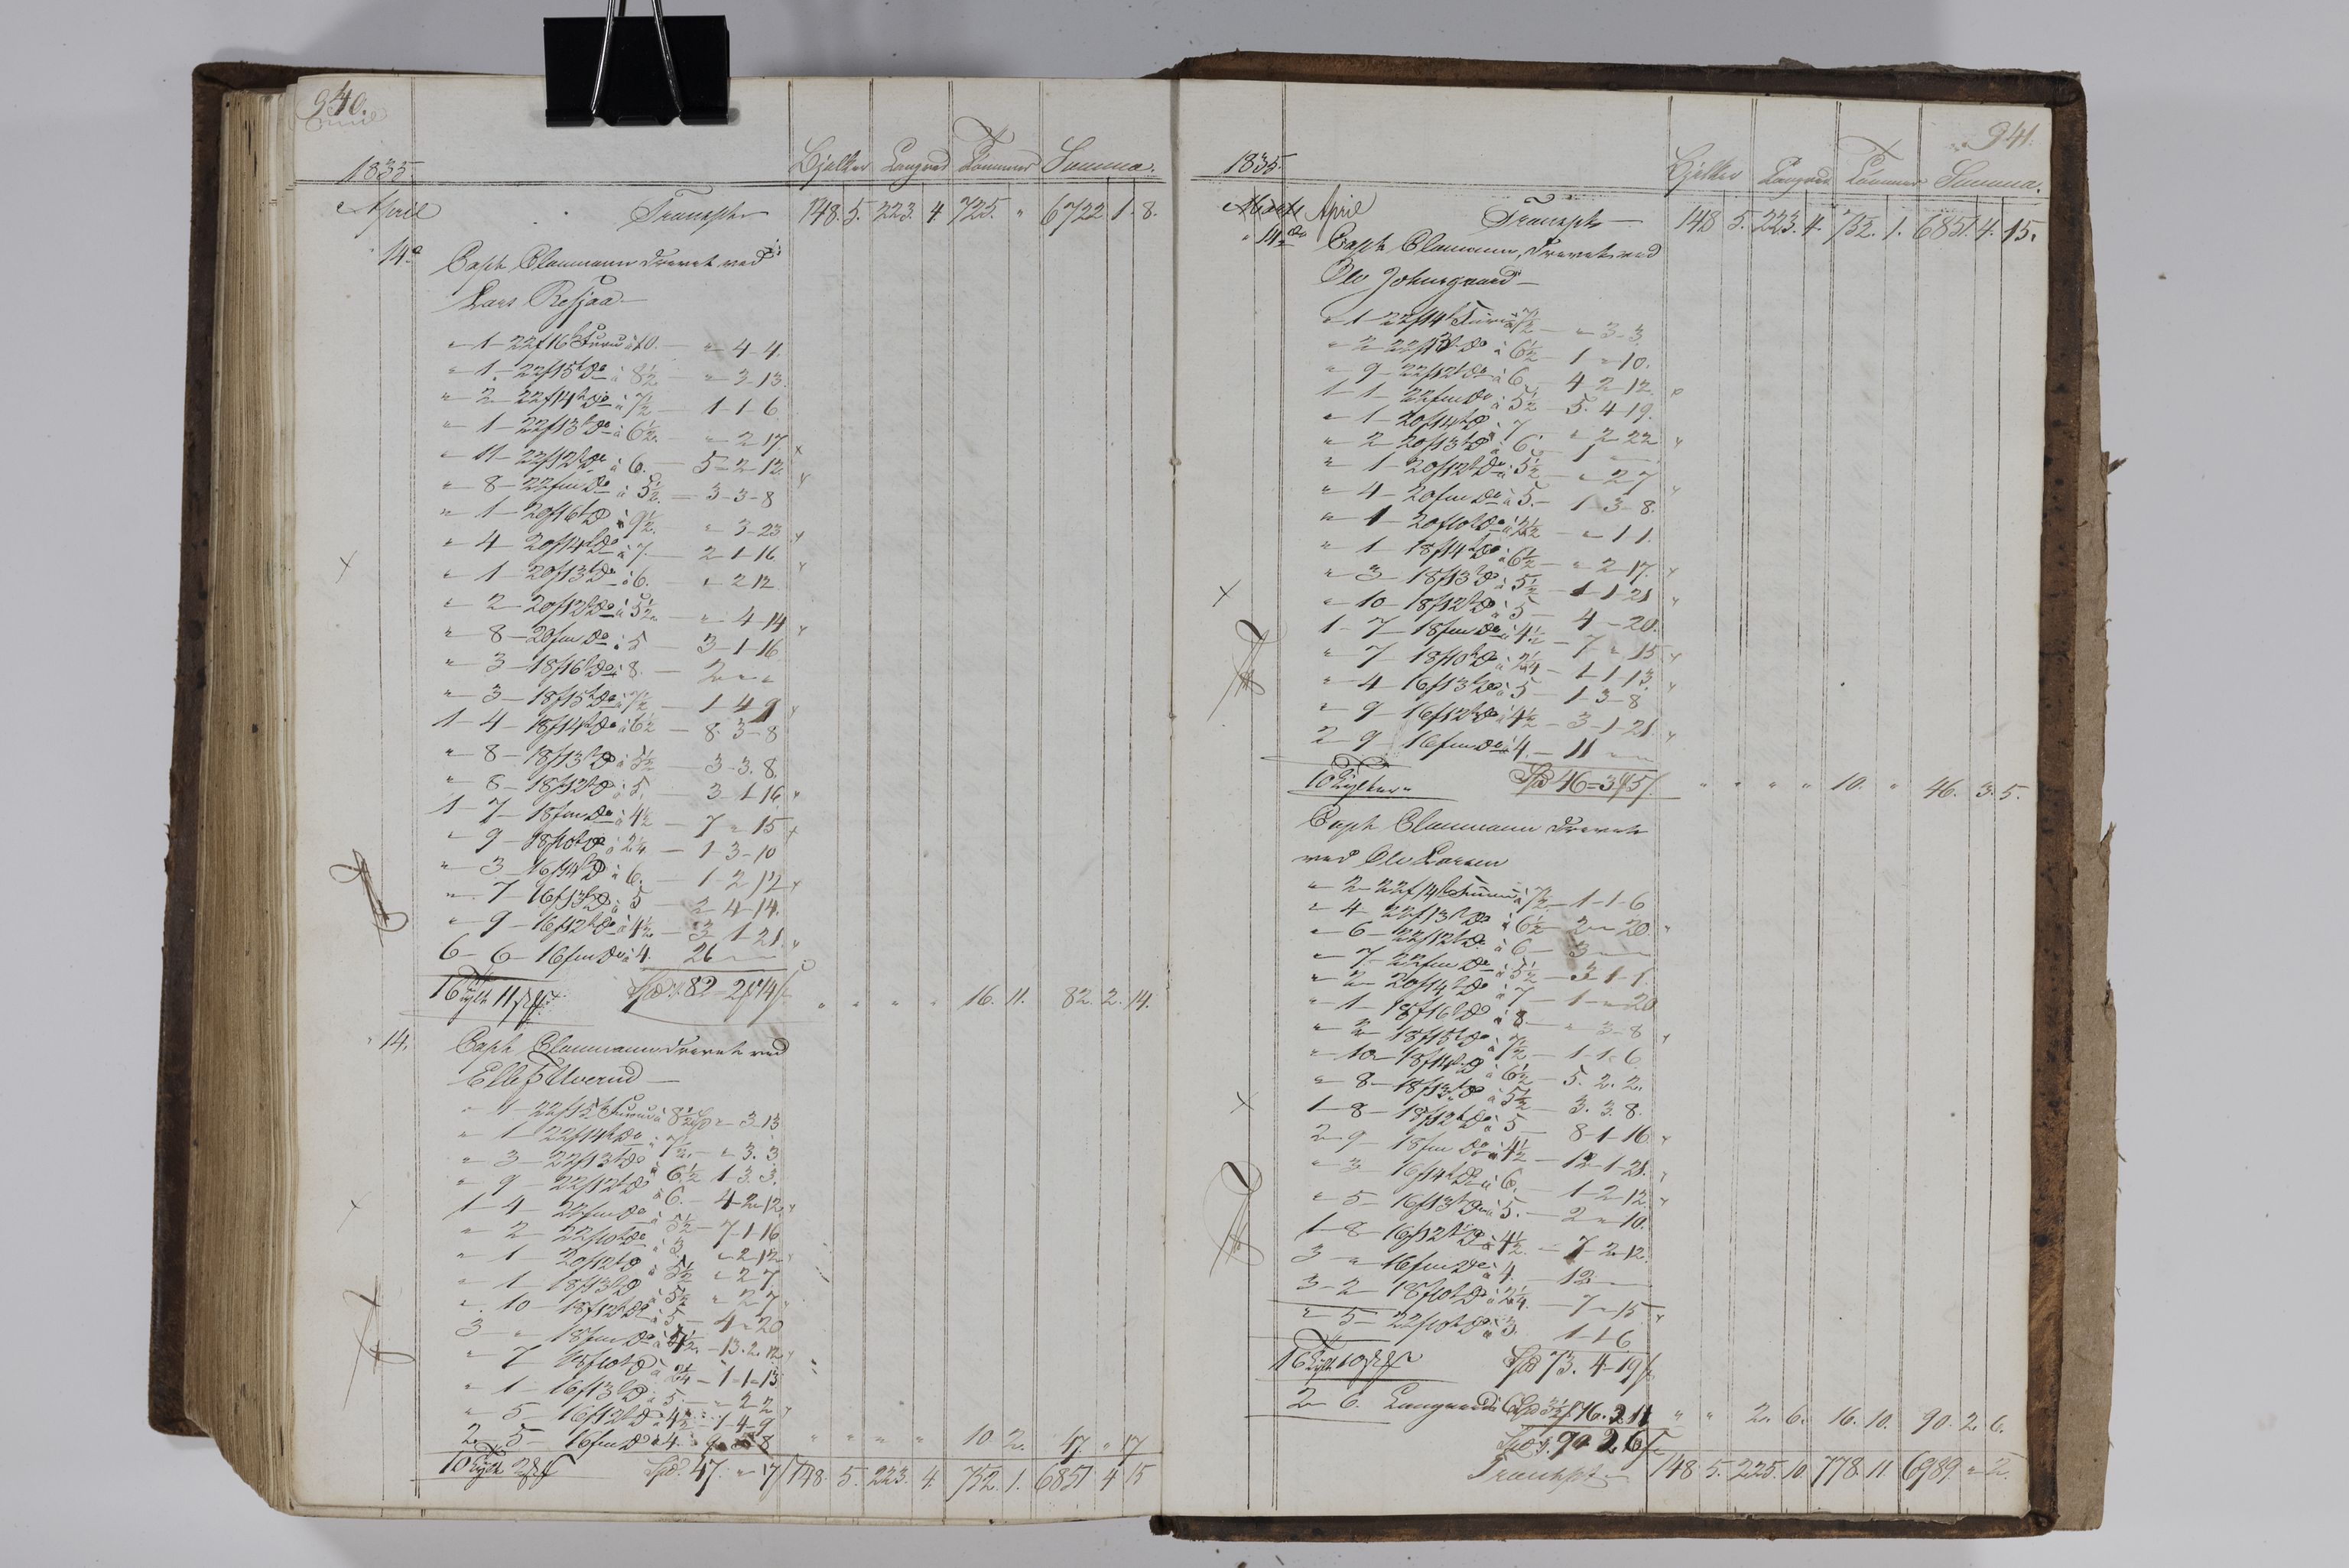 940.
1835.
Bjelker Langved Tömmer Summa.
April Transpt 148. 5. 223. 4. 725. " 6722 1. 8.
14de Capt Claumann drevet ved
Lars Rosjaa
" 1 - 22f 16t Furu à 10. - " 4 4.
" 1 - 22f 15t Do à 8½ - " 3 - 13.
" 2 - 22f 14t Do à 7½ - 1 - 1 - 6
" 1 - 22f 13t Do à 6½. - " 2 17
" 11 - 22f 12t Do à 6. - 5 - 2 - 12.
" 8 - 22f m Do à 5½. - 3 - 3 - 8
" 1 - 20f 16t Do à 9½. - " 3 - 23
" 4 - 20f 14t Do à 7. - 2 - 1 - 16
" 1 - 20f 13t Do à 6. - " 2 12
" 2 - 20f 12t Do à 5½ - " 4 - 14
" 8 - 20f m Do à 5 - 3 - 1 - 16
" 3 - 18f 16t Do à 8. - 2 " "
" 3 - 18f 15t Do à 7½ - 1 - 4 9
1 - 4 - 18f 14t Do à 6½ - 8. 3 - 8
" 8 - 18f 13t Do à 5½ - 3 - 3. 8.
" 8 - 18f 12t Do à 5. - 3 - 1 16
1 - 7 - 18f m Do à 4½ - 7 " 15
" 9 - 18f 10t Do à 2¼ - 1 - 3 - 10
" 3 - 16f 14t Do à 6. - 1 - 2 12
" 7 - 16f 13t Do à 5 - 2 - 4 - 14.
" 9 - 16f 12t Do à 4½ - 3 1 - 21.
6 - 6 - 16f m Do à 4. 26 " "
16 Tylt 11 Spd. 82 - 2 14 " " " " 16. 11. 82. 2. 14.
" 14. Capt Claumann drevet ved
Ellef Uverud
" 1 - 22f 15t Furu à 8½ " 3 - 13
" 1 - 22f 14t Do à 7½. - " 3. 3
" 3 - 22f 13t Do à 6½ 1 - 3. 3.
" 9 - 22f 12t Do à 6. - 4 - 2 - 12.
1 - 4 - 22f m Do à 5½ - 7 - 1 - 16
" 2 - 22f 10t Do à 3. " 2 - 12
" 1 - 20f 12t Do à 5½ " 2 - 7
" 1 - 18f 13t Do à 5½ " 2 7
" 10 - 18f 12t Do à 5 - 4 " 20
3 - " 18f m Do à 4½. - 13. 2. 12
" 7 - 18f 10t Do à 2¼ - 1 - 1 - 13
" 1 - 16f 13t Do à 5. - " 2 2
" 5 - 16f 12t Do à 4½ - 1 - 4 - 9
2. 5 - 16f m Do à 4. 9 8 " " " " 10. 2. 47. " 17
10 Tylt 2 Spd. 47. " 17 148. 5. 223. 4. 752. 1. 6851 4 15
941.
1835.
Bjelker Langved Tömmer Summa.
April Transpt 148 5. 223. 4. 752. 1. 6851. 4. 15.
" 14de Capt Claumann, drevet ved
Ole Johnsgaard
" 1 - 22f 14t Furu à 7½ - " 3 - 3.
" 2 - 22f 13t Do à 6½ - 1 " 10.
" 9 - 22f 12t Do à 6 - 4 2 12.
1 - 1 - 22f m Do à 5½ - 5. 4 - 19.
" 1 - 20f 14t Do à 7 - " 2 - 22
" 2 - 20f 13t Do à 6. - 1 " "
" 1 - 20f 12t Do à 5½ - " 2 7
" 4 - 20f m Do à 5. - 1 - 3 - 8.
" 1 - 20f 10t Do à 2½ - " 1 1.
" 1 - 18f 14t Do à 6½ - " 2 - 17.
" 3 - 18f 13t Do à 5½ - 1 - 1 - 21
" 10 - 18f 12t Do à 5 - 4 - 20.
1 - 7 - 18f m Do à 4½ - 7 " 15
" 7 - 18f 10t Do à 2¼ - 1 - 1 - 13.
" 4 - 16f 13t Do à 5 - 1 - 3 - 8
" 9 - 16f 12t Do à 4½ - 3 - 1 - 21.
2 9 - 16f m Do à 4. - 11 " "
10 Tylter " Spd 46 = 3 5 " " " " 10. " 46. 3. 5.
Capt Claumann drevet
ved Ole Larsen
" 2 - 22f 14t Furu à 7½. - 1 - 1 - 6
" 4 - 22f 13t Do à 6½ - 2 " 20.
" 6 - 22f 12t Do à 6 - 3 " "
" 7 - 22f m Do à 5½ - 3 1 - 1.
" 2 - 20f 14t Do à 7 - 1 - " 20
" 1 - 18f 16t Do à 8 - " 3 - 8
" 2 - 18f 15t Do à 7½ - 1 - 1 - 6
" 10 - 18f 14t Do à 6½ - 5. 2. 2.
" 8 - 18f 13t Do à 5½ - 3. 3. 8.
1 - 8 - 18f 12t Do à 5 - 8 - 1 - 16.
2 - 9 - 18f m Do à 4½ - 12 - 1 - 21.
" 3 16f 14t Do à 6. - 1 - 2 - 12.
" 5 - 16f 13t Do à 5. - 2 " 10.
1 - 8 - 16f 12t Do à 4½. - 7 - 2. 12.
3 " 16f m Do à 4. - 12 " "
3 - 2 18f 10t Do à 2¼. - 7 " 15
" 5 - 22f 10t Do à 3. 1 - 1 6
16 Tylt 10 Spd 73. 4 - 19
2 6. Langved à 6 Spd 3½ 16. 2 11 " " 2. 6. 16. 10. 90. 2. 6.
Spd. 90 2. 6
Transpt 148. 5. 225. 10. 778. 11. 6989. " 2.